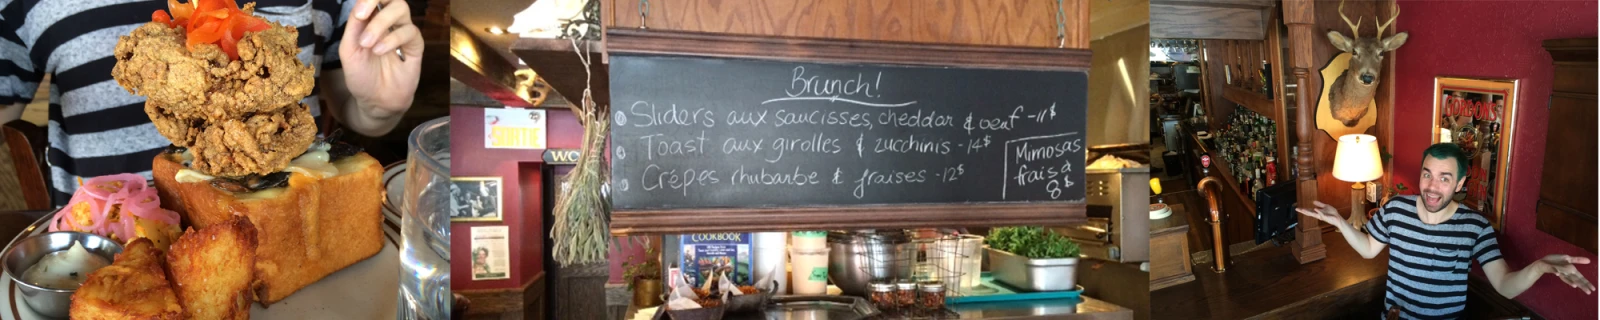 Brunch!
Sliders aux saucisses, cheddar & oeuf - 11$
Toast aux girolles & zucchinis - 14$
Crêpes rhubarbe & fraises - 12$
Mimosas
frais à
8$
SORTIE
WO
COOKBOOK